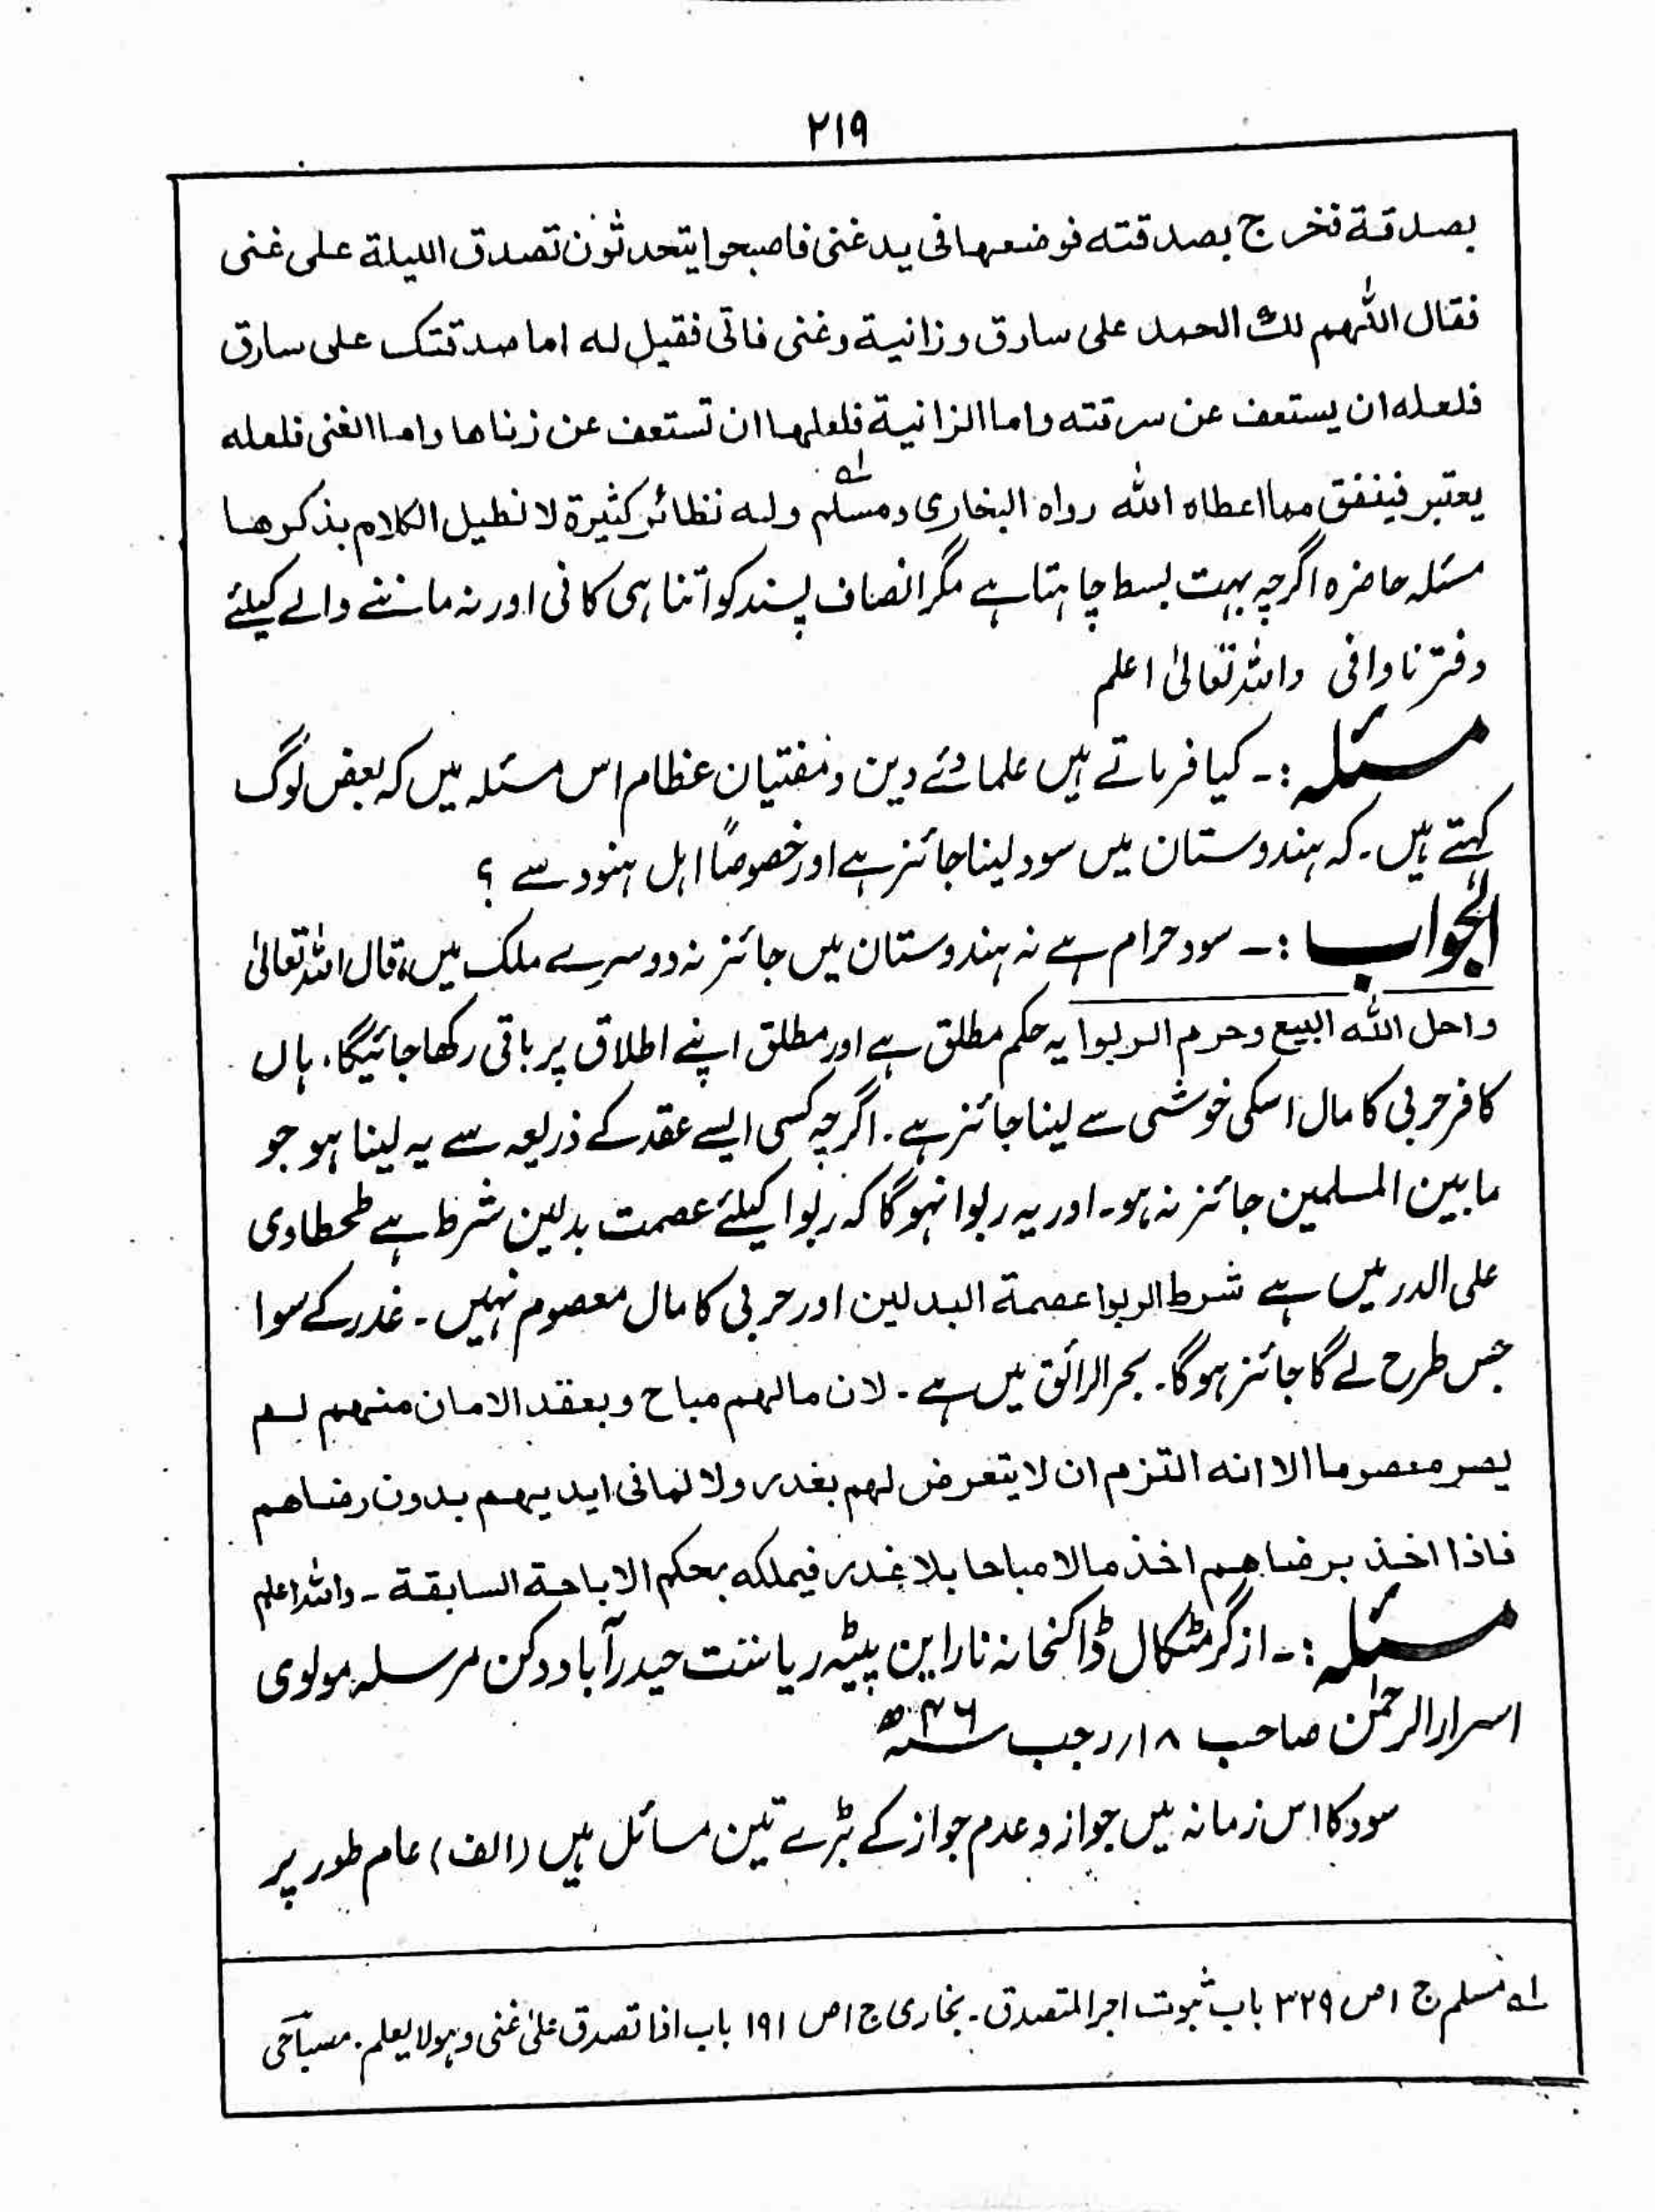 ۲۱۹
بصدقة فخرج بصدقته فوضعها فی ید غنی فاصبحوا یتحدثون تصدق اللیلة علی غنی
فقال اللّٰهم لك الحمد علی سارق وزانیة وغنی فاتی فقیل له اما صدقتک علی سارق
فلعله ان یستعف عن سرقته واما الزانیة فلعلها ان تستعف عن زناها واما الغنی فلعله
یعتبر فینفق مما اعطاه اللّٰه رواه البخاری ومسلم لہ وله نظائر کثیرة لا نطیل الکلام بذکرها
مسئلہ حاضرہ اگرچہ بہت بسط چاہتا ہے مگر انصاف پسند کو اتنا ہی کافی اور نہ ماننے والے کیلئے
دفتر ناوافی واللہ تعالیٰ اعلم
مسئلہ :۔ کیا فرماتے ہیں علمائے دین ومفتیان عظام اس مسئلہ میں کہ بعض لوگ
کہتے ہیں۔ کہ ہندوستان میں سود لینا جائز ہے اور خصوصاً اہل ہنود سے ؟
الجواب :۔ سود حرام ہے نہ ہندوستان میں جائز نہ دوسرے ملک میں، قال اللہ تعالیٰ
واحل اللّٰه البیع وحرم الربوا یہ حکم مطلق ہے اور مطلق اپنے اطلاق پر باقی رکھا جائیگا، ہاں
کافر حربی کا مال اسکی خوشی سے لینا جائز ہے۔ اگرچہ کسی ایسے عقد کے ذریعہ سے یہ لینا ہو جو
مابین المسلمین جائز نہ ہو۔ اور یہ ربوا نہوگا کہ ربوا کیلئے عصمت بدلین شرط ہے طحطاوی
علی الدر میں ہے شرط الربوا عصمة البدلین اور حربی کا مال معصوم نہیں۔ غدر کے سوا
جس طرح لے گا جائز ہوگا۔ بحر الرائق میں ہے۔ لان مالهم مباح وبعقد الامان منهم لم
یصر معصوما الا انه التزم ان لا یتعرض لهم بغدر ولا لما فی ایدیهم بدون رضاهم
فاذا اخذ برضاهم اخذ مالا مباحا بلا غدر فیملکه بحکم الاباحة السابقة ۔ واللہ اعلم
مسئلہ :۔ از گرمٹکال ڈاکخانہ نارابن پیٹہ ریاست حیدرآباد دکن مرسلہ مولوی
اسرار الرحمٰن صاحب ۱۸ رجب سنہ ۴۶ھ
سود کا اس زمانہ میں جواز وعدم جواز کے بڑے تین مسائل ہیں (الف) عام طور پر
لہ مسلم ج ۱ ص ۳۲۹ باب ثبوت اجر المتصدق۔ بخاری ج ۱ ص ۱۹۱ باب اذا تصدق علیٰ غنی وہو لا یعلم۔ مصباحی